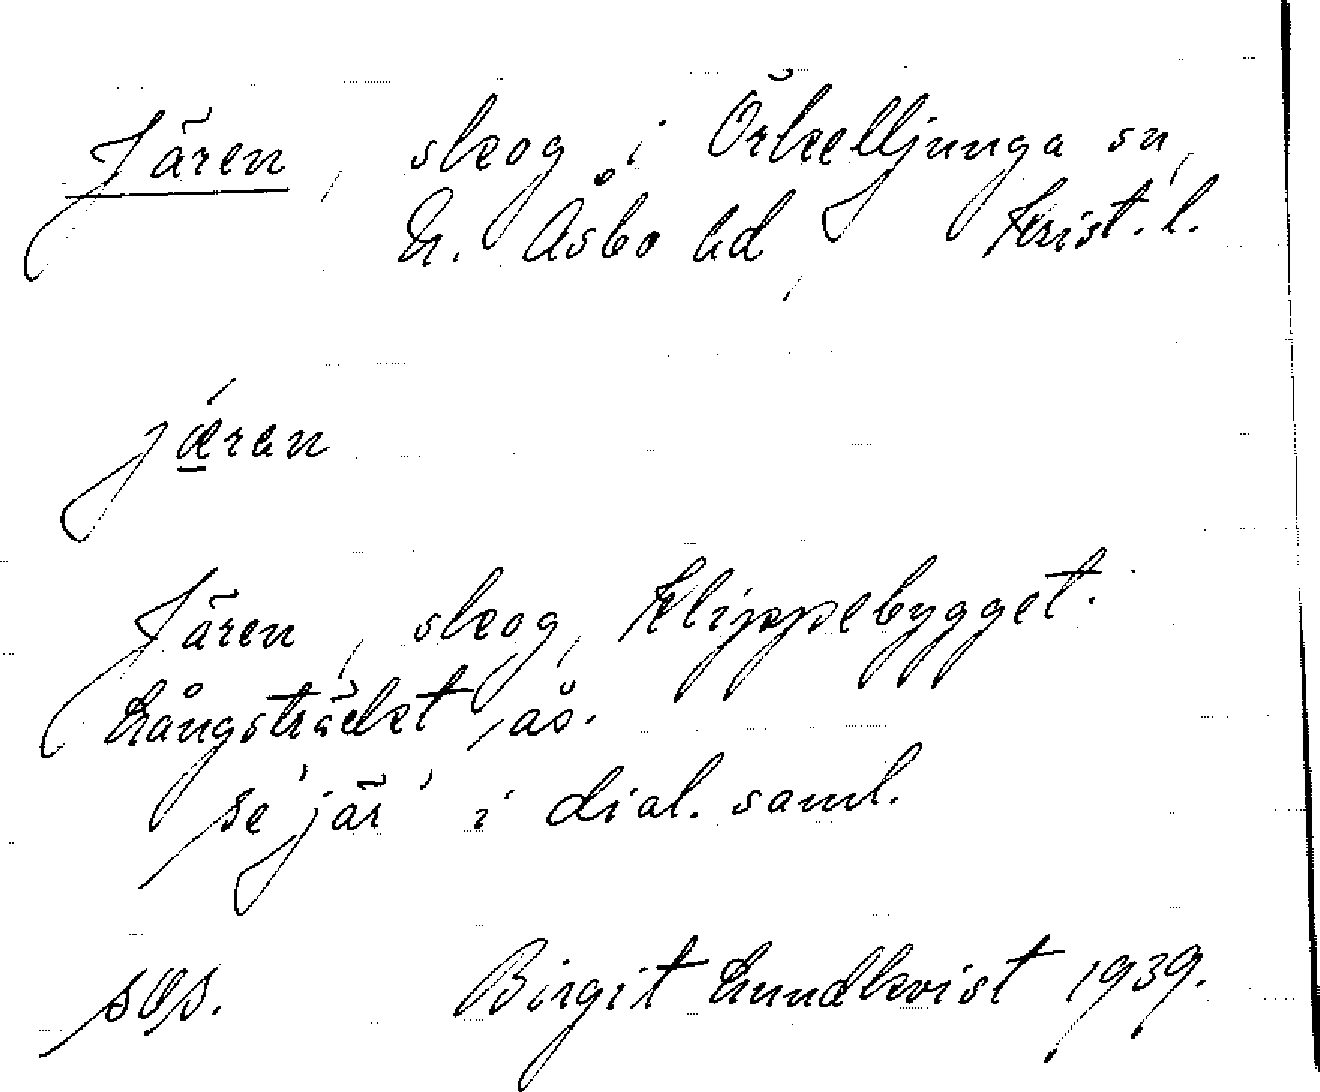 Jären, skog i Örkelljunga sn,
N. Åsbo hd, Krist. l.
jǽ̲ran
Jären, skog, Klippebygget.
Långsträckt ås.
se 'jär' i dial. saml.
sos. Birgit Lundkvist 1939.